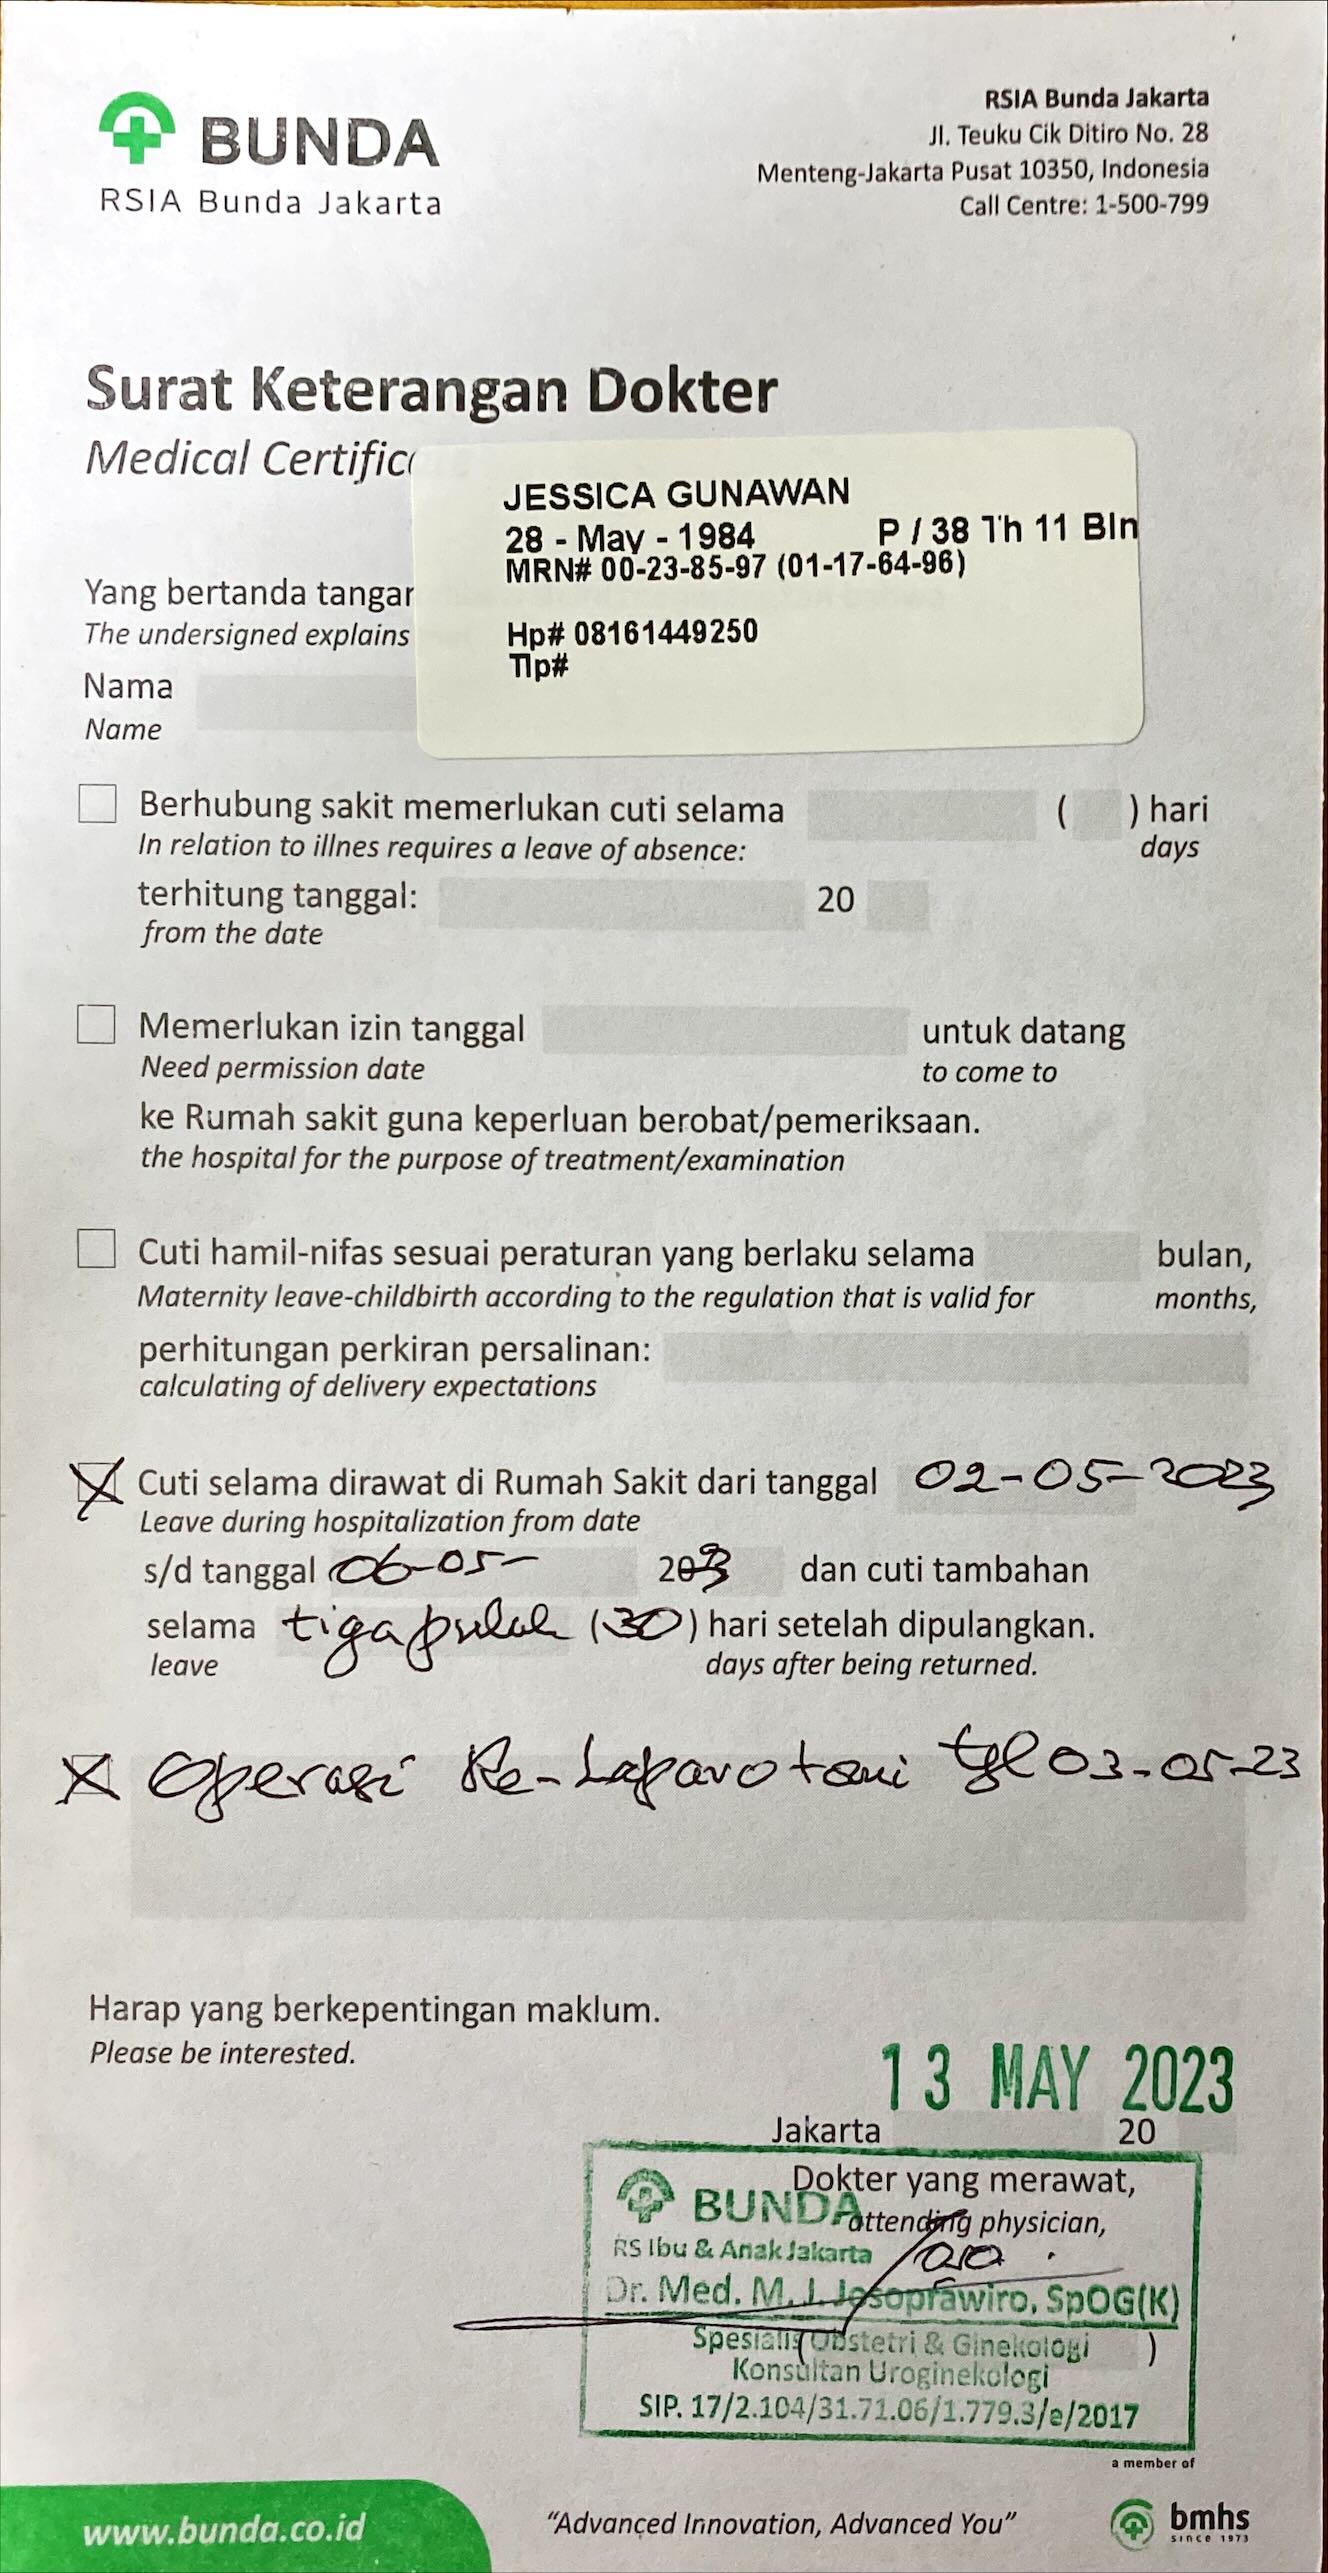 BUNDA
RSIA Bunda Jakarta
RSIA Bunda Jakarta
Jl. Teuku Cik Ditiro No. 28
Menteng-Jakarta Pusat 10350, Indonesia
Call Centre: 1-500-799
Surat Keterangan Dokter
Medical Certific
JESSICA GUNAWAN
28 - May - 1984 P / 38 Th 11 Bln
MRN# 00-23-85-97 (01-17-64-96)
Hp# 08161449250
Tlp#
Yang bertanda tangan
The undersigned explains
Nama
Name
Berhubung sakit memerlukan cuti selama ( ) hari
In relation to illnes requires a leave of absence: days
terhitung tanggal: 20
from the date
Memerlukan izin tanggal untuk datang
Need permission date to come to
ke Rumah sakit guna keperluan berobat/pemeriksaan.
the hospital for the purpose of treatment/examination
Cuti hamil-nifas sesuai peraturan yang berlaku selama bulan,
Maternity leave-childbirth according to the regulation that is valid for months,
perhitungan perkiran persalinan:
calculating of delivery expectations
Cuti selama dirawat di Rumah Sakit dari tanggal 02-05-2023
Leave during hospitalization from date
s/d tanggal 06-05- 2023 dan cuti tambahan
selama tiga puluh (30) hari setelah dipulangkan.
leave days after being returned.
Operasi Re-Laparotomi tgl 03-05-23
Harap yang berkepentingan maklum.
Please be interested.
13 MAY 2023
Jakarta 20
Dokter yang merawat,
attending physician,
BUNDA
RS Ibu & Anak Jakarta
Dr. Med. M. J. Josoprawiro, SpOG(K)
Spesialis Obstetri & Ginekologi
( )
Konsultan Uroginekologi
SIP. 17/2.104/31.71.06/1.779.3/e/2017
a member of
www.bunda.co.id
"Advanced Innovation, Advanced You"
bmhs
SINCE 1973